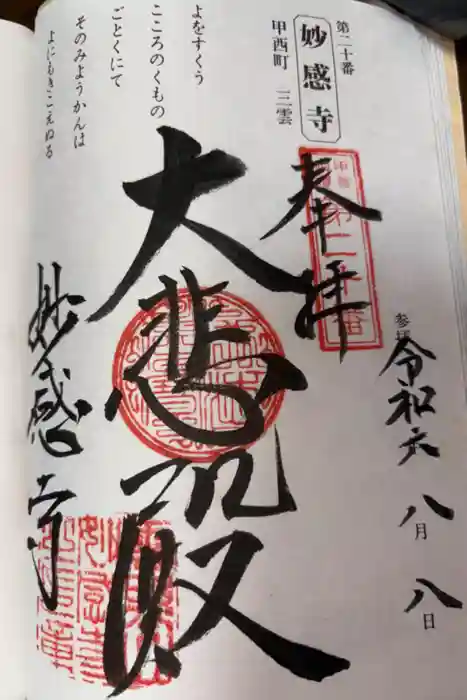 第二十番
妙感寺
甲西町　三雲
よをすくう
こころのくもの
ごとくにて
そのみようかんは
よにもきこえぬる
奉拝
第二十番
参拝
令和六
八月
八日
大悲殿
妙感寺